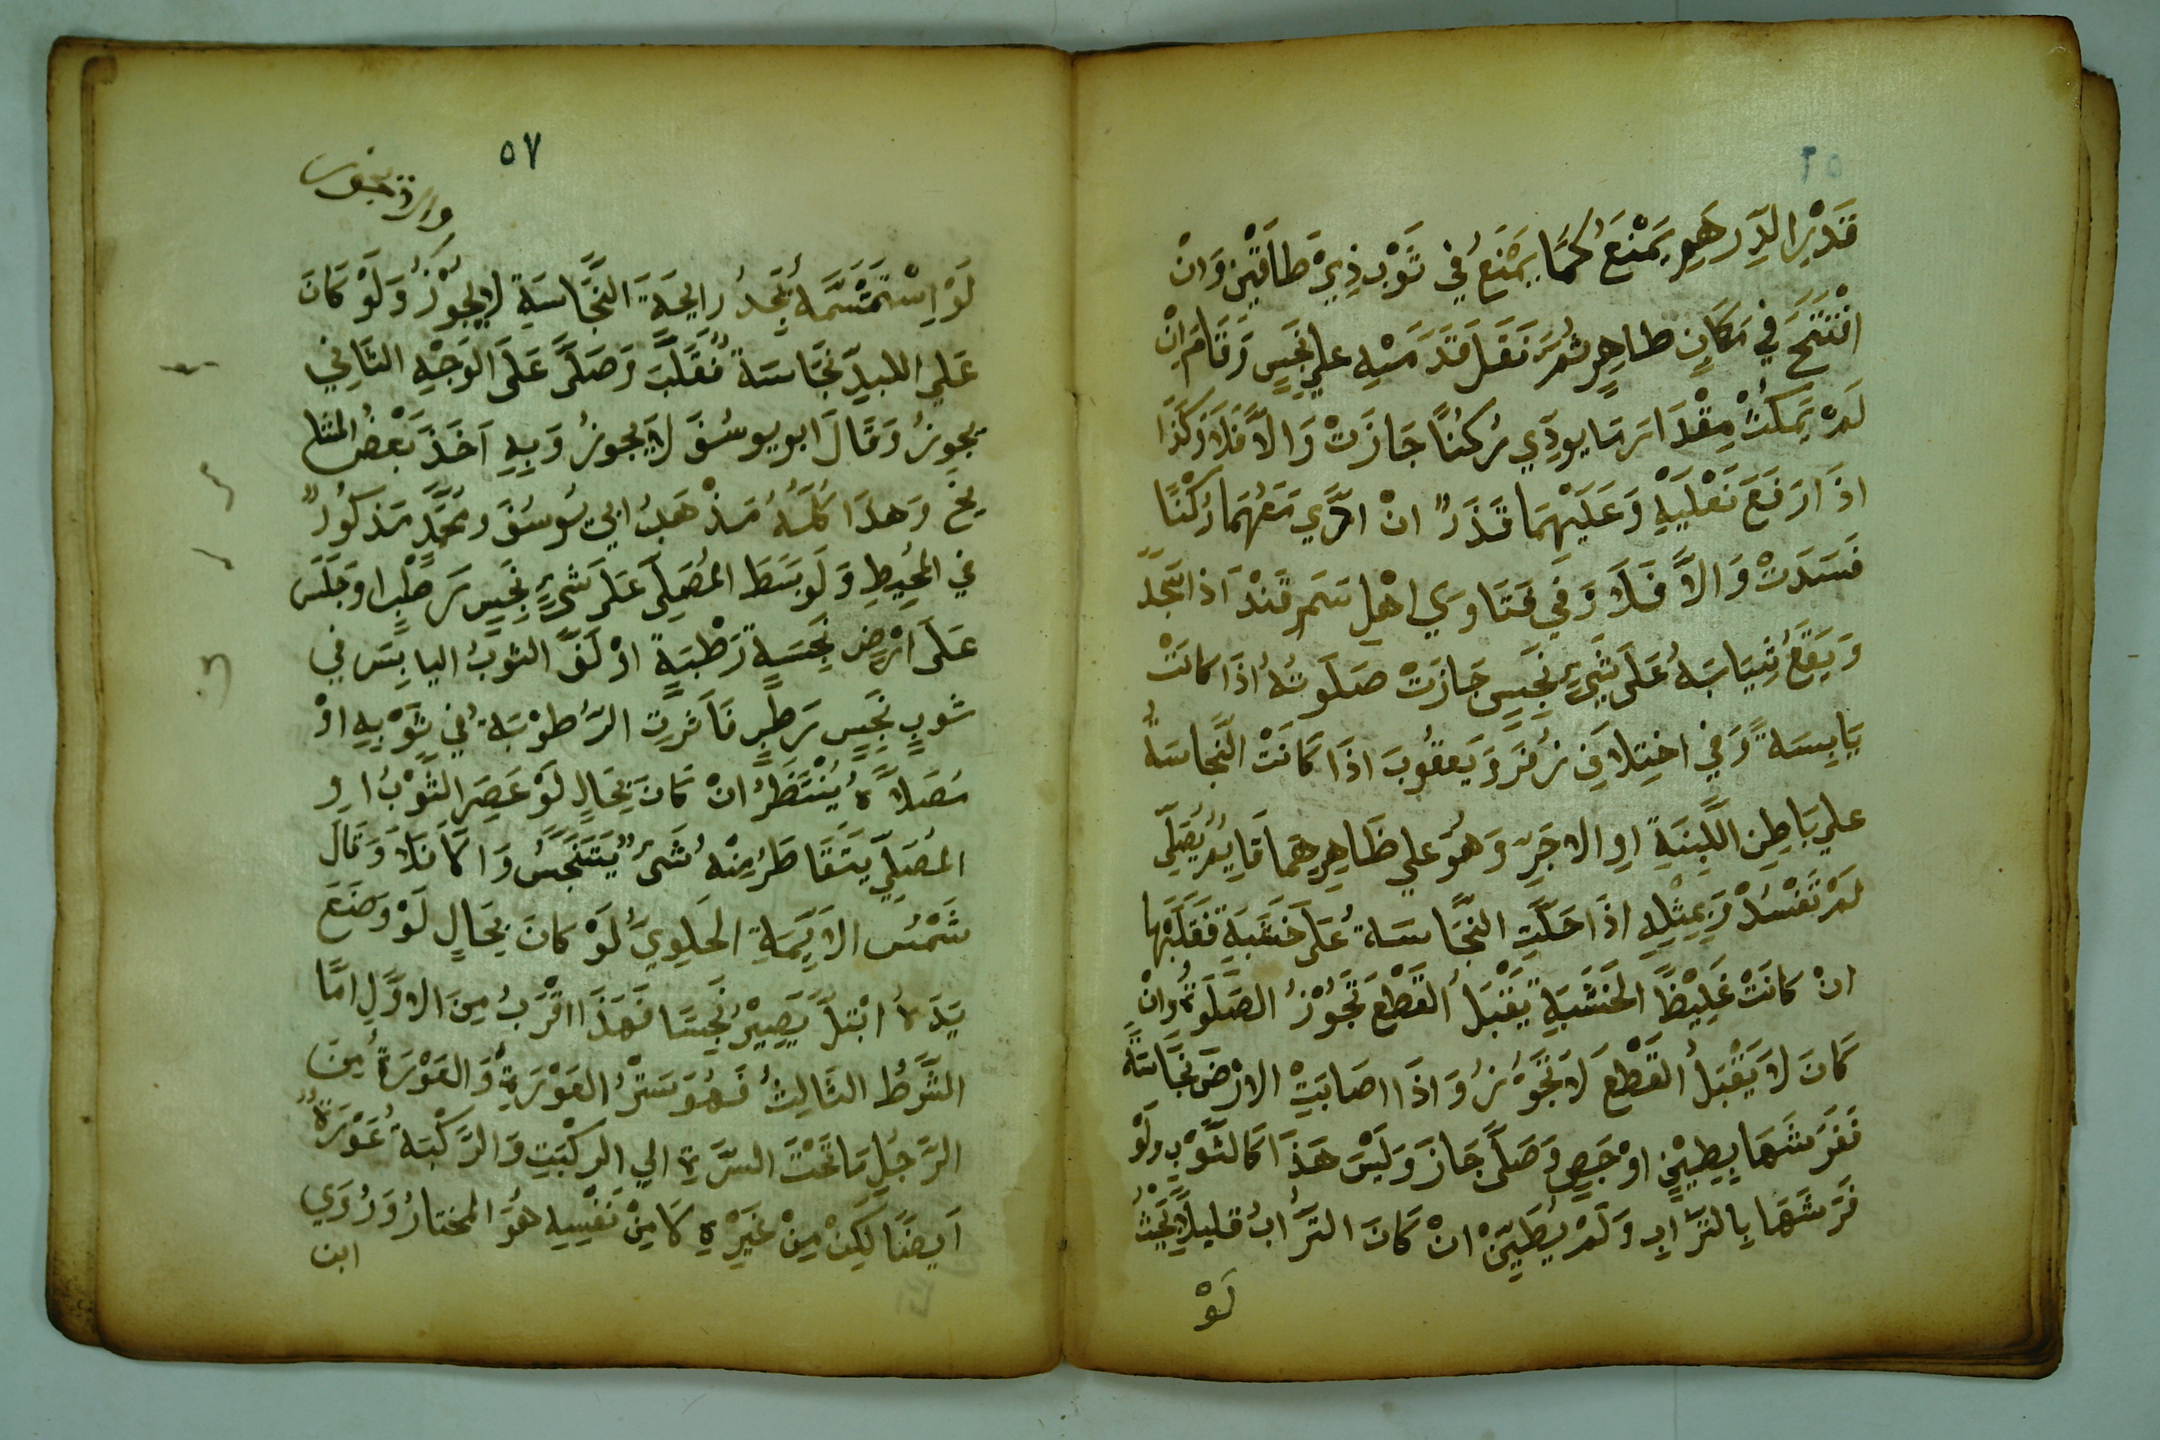 ٥٦
قَدْرِ الدِّرْهَمِ يَمْنَعُ كَمَا يَمْنَعُ فِي ثَوْبٍ ذِيْ طَاقَيْنِ وَانْ
افْتَتَحَ فِي مَكَانٍ طَاهِرٍ ثُمَّ نَقَلَ قَدَمَيْهِ علي نَجِسٍ وَقَامَ اِنْ
لَمْ يَمْكُثْ مِقْدَارَ مَا يودِي رُكْنًا جَازَتْ وَالاَّ فَلَا وَكَذَا
اذَا رَفَعَ نَعْلَيْهِ وَعَلَيْهِمَا قَذَرٌ انْ ادَّي مَعَهُمَا رُكْنًا
فَسَدَتْ وَالاَّ فَلَا وَفِي فَتَاوِي اهْلِ سَمَرقَنْدَ اذا سَجَدَ
وَيَقَعُ ثِيَابَهُ عَلَى شَيْءٍ نَجِسٍ جَازَتْ صَلَوتُهُ اذَا كانَتْ
يَابِسَةً وَفِي اختِلَافِ زُفَرَ وَيَعقُوبَ اذَا كَانَتْ النَّجَاسَةُ
علي بَاطِنِ اللَّبِنَةِ اوِ الاجَرِّ وَهُوَ علي ظَاهِرِهِمَا قَايِمٌ يُصَلِّي
لَمْ تَفْسُدْ وَبِمِثْلِهِ اذَا حَلَّتِ النَّجَاسَةُ عَلَى خَشَبَةٍ فَقَلَّبَهَا
انْ كانَتْ غَلِيْظَ الخَشَبَةِ يَقْبَلُ القَطْعَ تَجُوْزُ الصَّلَوةُ وانْ
كَانَ لاَ يَقْبَلُ القَطْعَ لاَ تَجُوْزُ وَاذَا اصَابَتْ الارْضَ نَجَاسَةٌ
فَفَرَشَهَا بِطِيْنٍ اوْ جَصٍ وَصَلَّى جَازَ وَلَيْسَ هَذَا كَالثَّوْبِ وَلَوْ
فَرَشَهَا بِالتُّرَابِ وَلَمْ يُطَيِّنْ انْ كَانَ التُّرَابُ قليلاً بِحَيْثُ
لَوْ
٥٧
لَوْ اِسْتَشَمَّهُ يَجِدُ رايحَةَ النَّجَاسَةِ لايَجُوْزُ وَلَوْ كَانَ
عَلَي اللبدِ نَجَاسَةٌ فَقَلَّبَ وَصَلَّى عَلَى الوَجْهِ الثَانِي
يجوزُ وَقَالَ ابو يوسُفَ لايَجوزُ وَبِهِ اَخَذَ بَعْضُ المشا
يخِ وَهذَا كُلُّهُ مَذْهَبُ ابي يُوسُفَ ومحمَّدٍ مَذكُورٌ
في المُحِيطِ وَلَو بَسَطَ المُصَلِي عَلَى شَيْءٍ نَجِسٍ رَطْبٍ اوجَلَسَ
عَلَى ارْضٍ نَجِسَةٍ رَطْبَةٍ اوْ لَفَّ الثوبُ اليابِسَ في
ثوبٍ نَجِسٍ رَطبٍ فَاَثرتِ الرُّطُوْبَةُ في ثَوْبِهِ اوْ
مُصَلاَّهُ يُنْتَظَرُ انْ كَانَ بِحَالٍ لَوْ عَصِرَ الثَّوْبُ اوِ
المُصَلِّي يَتَقَاطَرُ مِنْهُ شَيٌ يَتَنَجَّسُ وَالا فَلَا وَقَالَ
شَمْسُ الاَيِمَةِ الحَلوِيُّ لَوْ كانَ بِحَالٍ لَوْ وَضَعَ
يَدَهُ ابْتَلَّ يَصِيْرُ نَجِسًا فَهَذَا اقْرَبُ مِنَ الاوَّلِ امَّا
الشَّرْطُ الثَالِثُ فَهُوَ سَتْرُ العَوْرَةِ وَالعَوْرَةُ مِنَ
الرَّجُلِ مَا تَحْتَ السُّرَةِ الي الرُكْبَتِ وَالرُّكْبَةُ عَوْرَةٌ
اَيضًا لَكِنْ مِنْ غَيْرِهِ لَا مِنْ نَفْسِهِ هُوَ المختارُ وَرُوَي
ابن